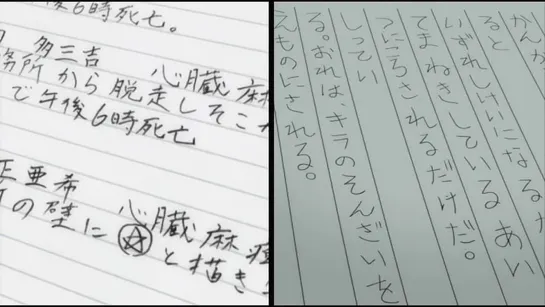 後6時死亡。
多三吉 心臓麻
務所から脱走しそこ
で午後6時死亡
亜希 心臓麻痺
の壁に ☆ と描き
ると
いずれしけいになる
てまねきしている あい
つにころされるだけだ。
しってい
る。おれは、キラのそんざいを
えものにされる。